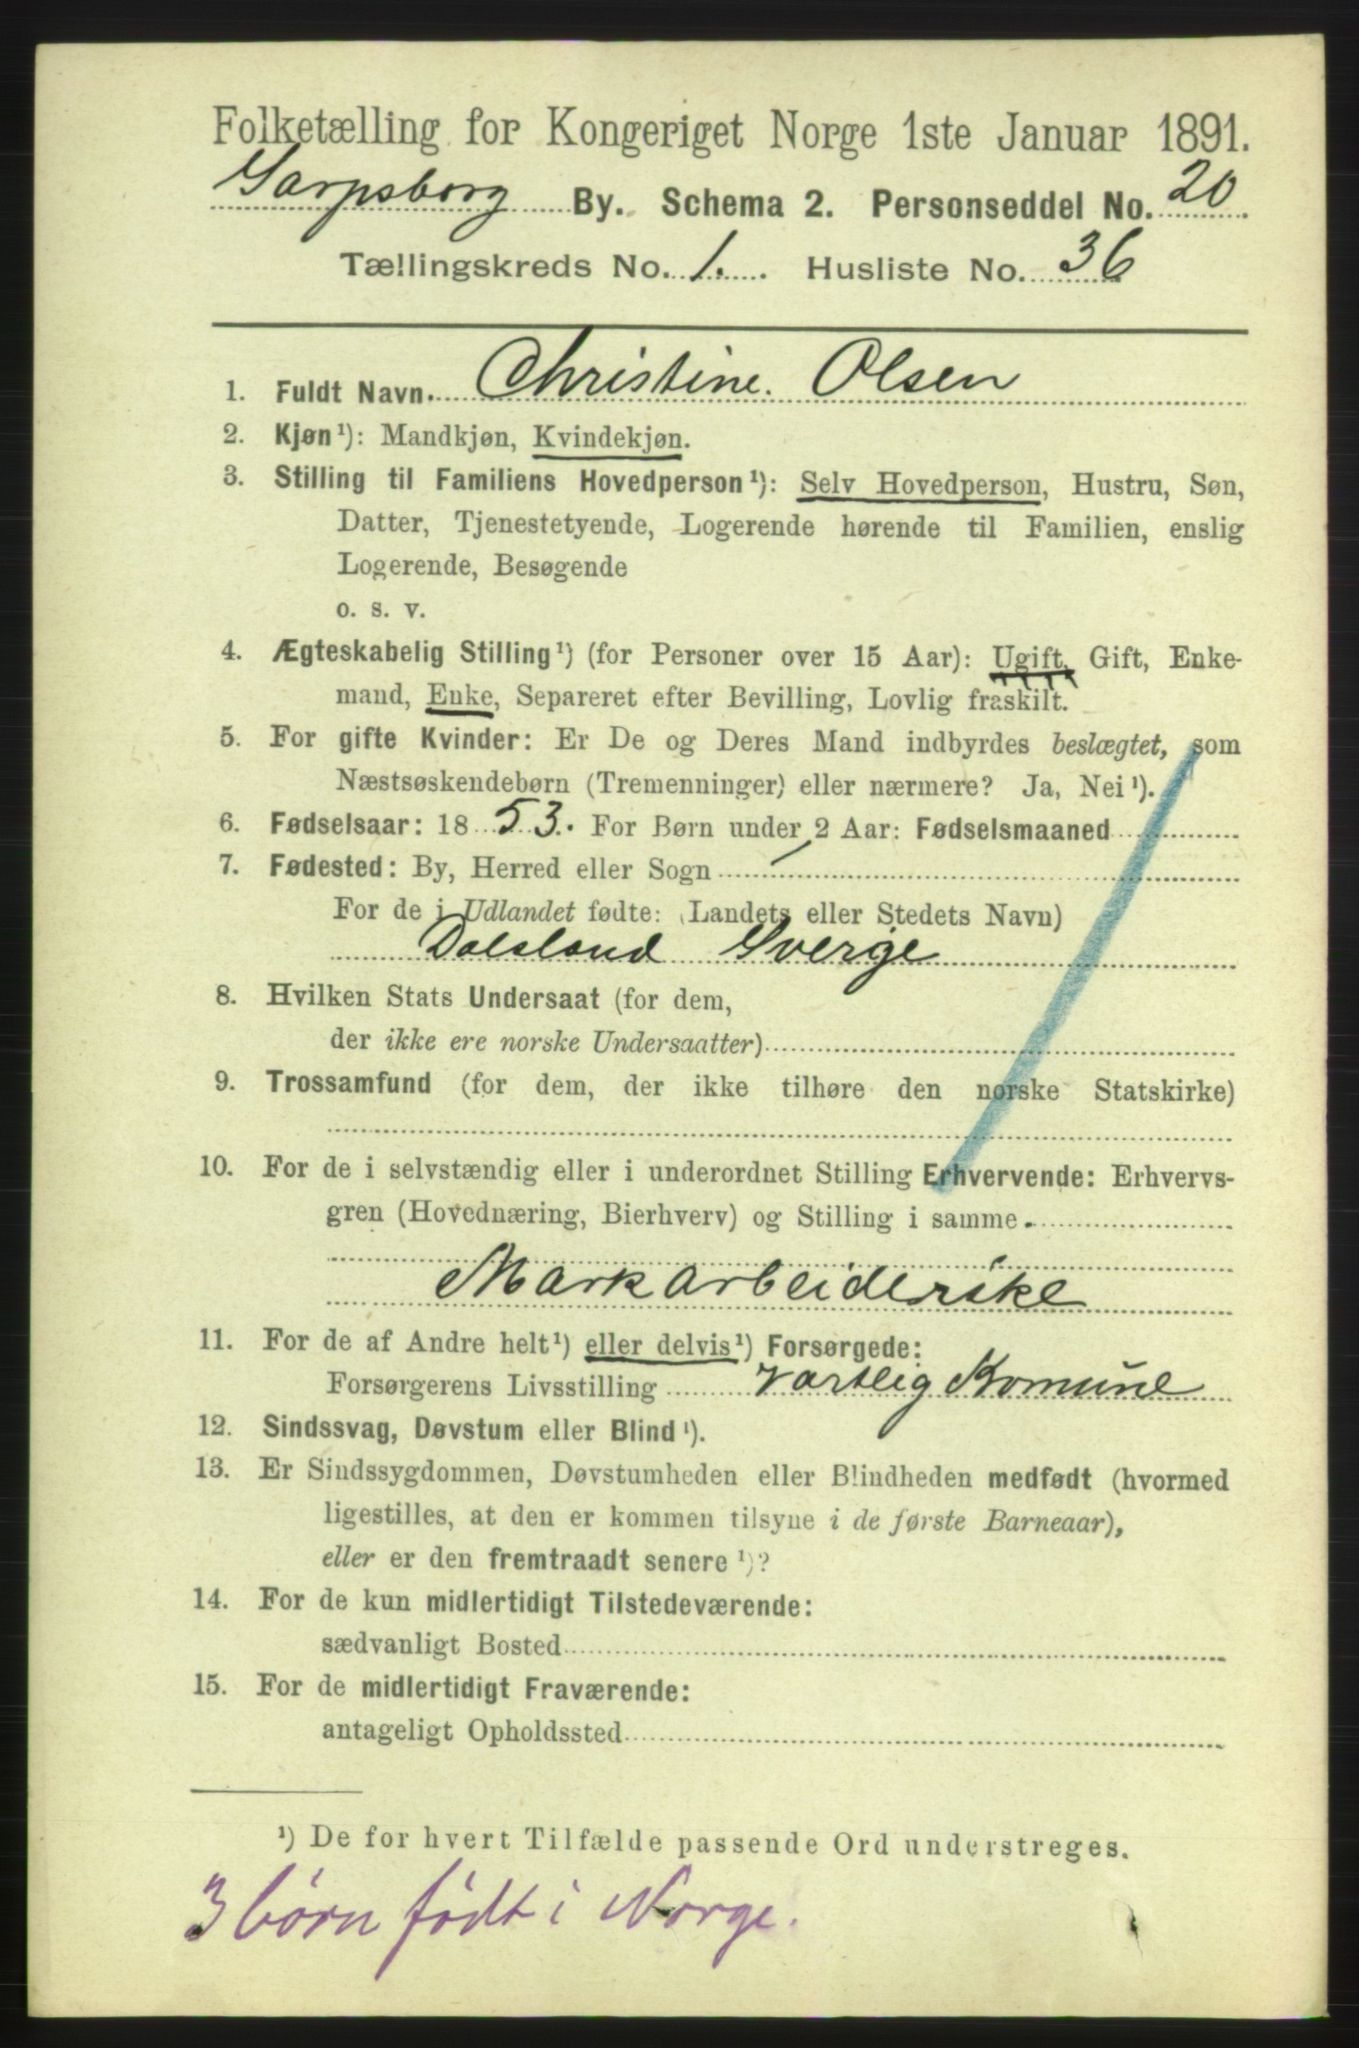 Folketælling for Kongeriget Norge 1ste Januar 1891.
Sarpsborg By. Schema 2. Personseddel No. 20
Tællingskreds No. 1. Husliste No. 36
1. Fuldt Navn. Christine. Olsen
2. Kjøn¹): Mandkjøn, Kvindekjøn.
3. Stilling til Familiens Hovedperson¹): Selv Hovedperson, Hustru, Søn,
Datter, Tjenestetyende, Logerende hørende til Familien, enslig
Logerende, Besøgende
o. s. v.
4. Ægteskabelig Stilling¹) (for Personer over 15 Aar): Ugift, Gift, Enke-
mand, Enke, Separeret efter Bevilling, Lovlig fraskilt.
5. For gifte Kvinder: Er De og Deres Mand indbyrdes beslægtet, som
Næstsøskendebørn (Tremenninger) eller nærmere? Ja, Nei¹).
6. Fødselsaar: 1853. For Børn under 2 Aar: Fødselsmaaned
7. Fødested: By, Herred eller Sogn
For de i Udlandet fødte: (Landets eller Stedets Navn)
Dalsland Sverige
8. Hvilken Stats Undersaat (for dem,
der ikke ere norske Undersaatter)
9. Trossamfund (for dem, der ikke tilhøre den norske Statskirke)
10. For de i selvstændig eller i underordnet Stilling Erhvervende: Erhvervs-
gren (Hovednæring, Bierhverv) og Stilling i samme.
Markarbeiderske
11. For de af Andre helt¹) eller delvis¹) Forsørgede:
Forsørgerens Livsstilling Varteig Komune
12. Sindssvag, Døvstum eller Blind¹).
13. Er Sindssygdommen, Døvstumheden eller Blindheden medfødt (hvormed
ligestilles, at den er kommen tilsyne i de første Barneaar),
eller er den fremtraadt senere¹)?
14. For de kun midlertidigt Tilstedeværende:
sædvanligt Bosted
15. For de midlertidigt Fraværende:
antageligt Opholdssted
¹) De for hvert Tilfælde passende Ord understreges.
3 børn født i Norge.